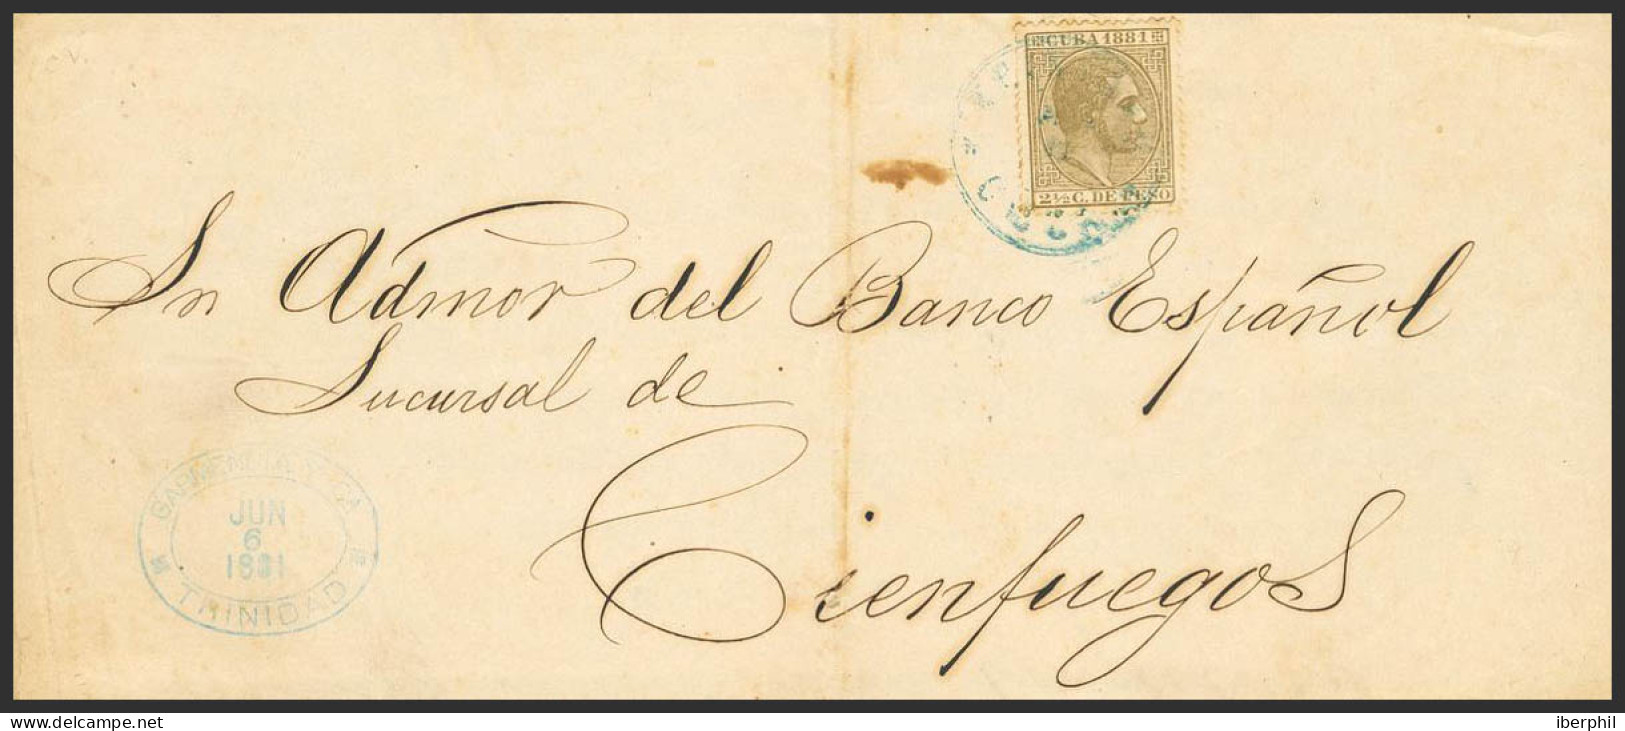 CUBA 1881
2½ C. DE PESO
Sr Admor del Banco Español
Sucursal de
Cienfuegos
JUN
6
1881
TRINIDAD
www.delcampe.net
iberphil